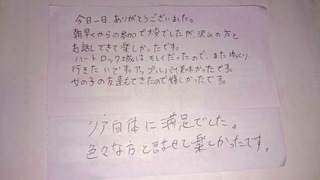 今日一日ありがとうございました。
朝早くからの参加で大変でしたが、沢山の方と
お話しできて楽しかったです。
ハートロック城はキレイだったので、またゆっくり
行きたいです。アップルパイも美味かったです。
女の子の友達もできたので嬉しかったです。
ツアー自体に満足でした。
色々な方と話せて楽しかったです。